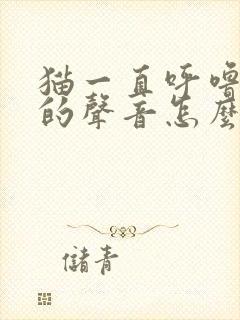 猫一直呼嚕
的聲音怎麼
儲青